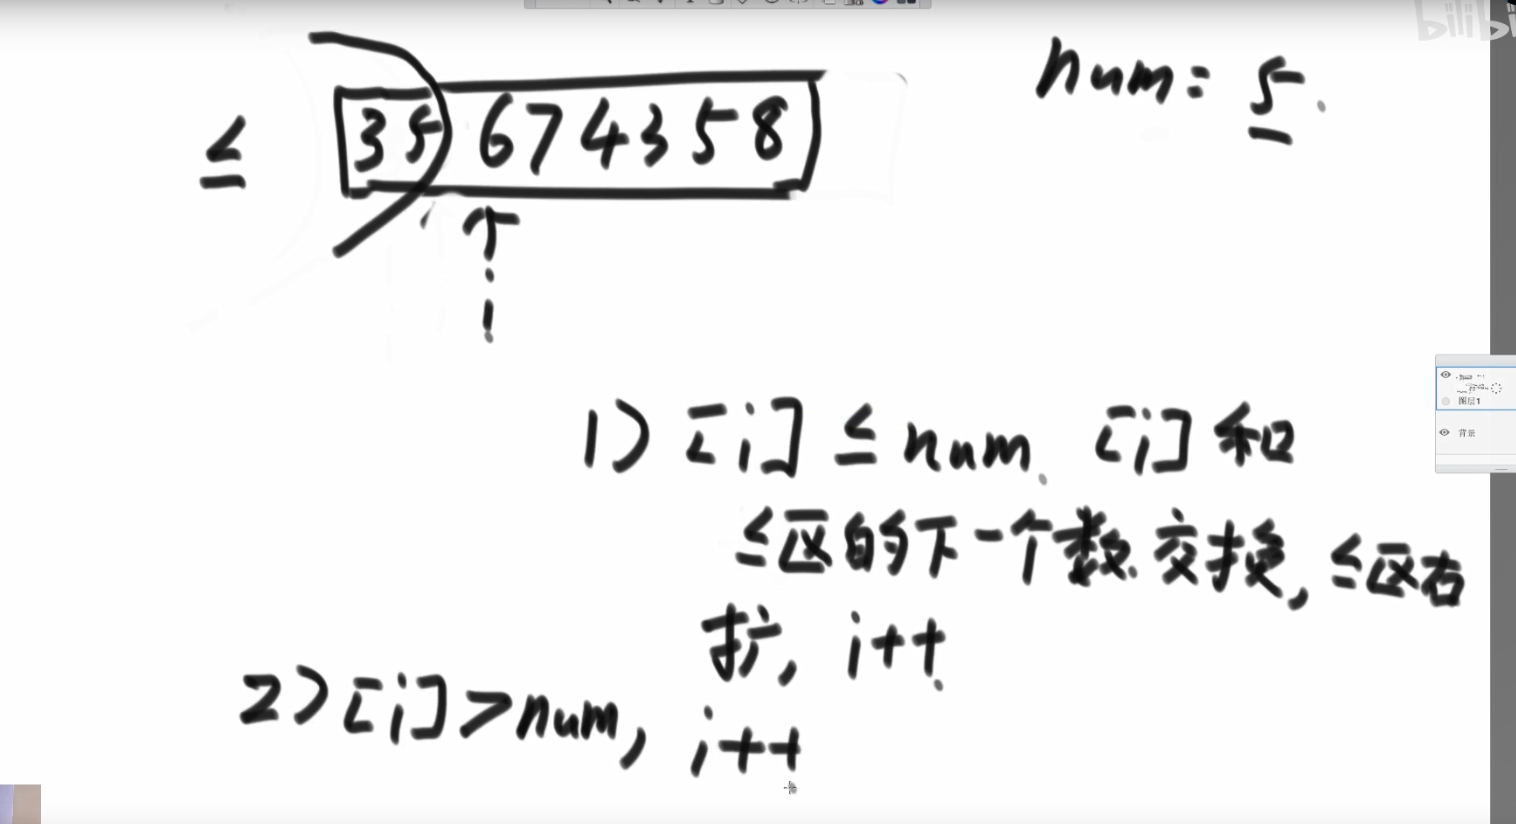 bilibi
num = 5.
≤ 3 5 6 7 4 3 5 8
↑
i
1) [i] ≤ num. [i] 和
≤区的下一个数交换, ≤区右
扩, i++
2) [i] > num, i++
图层1
背景